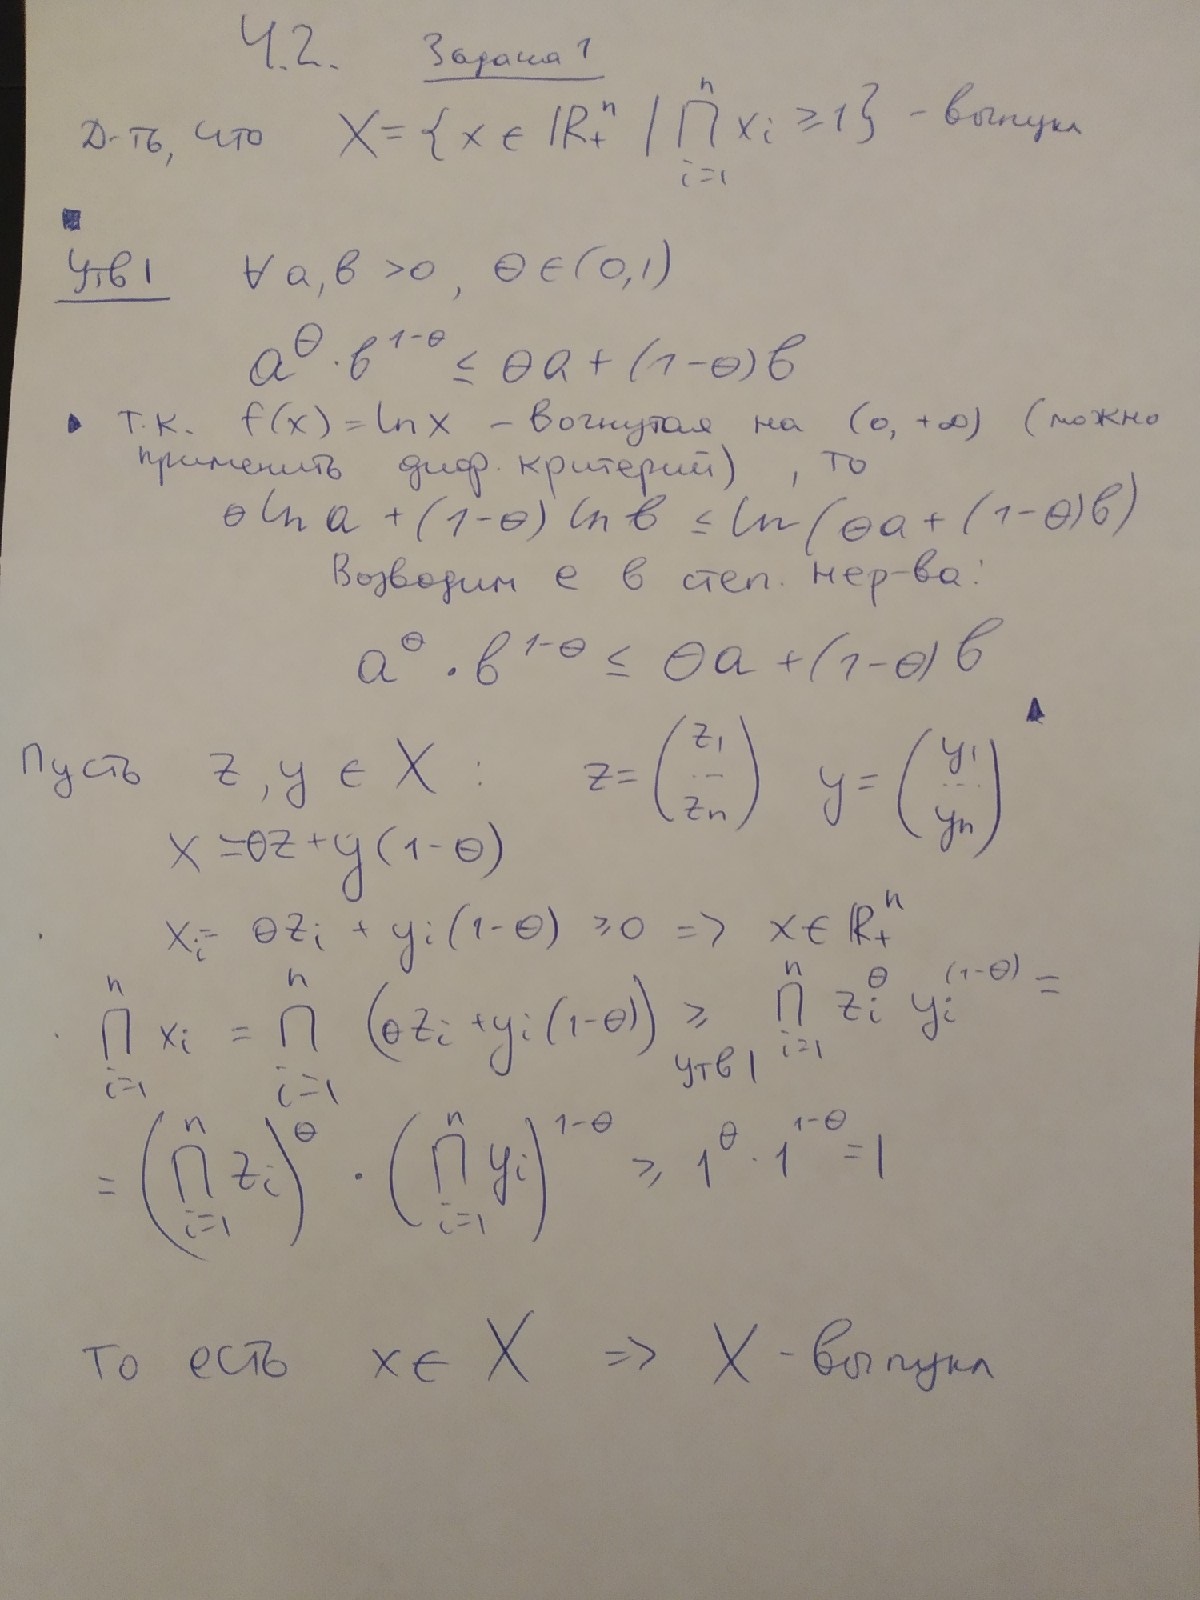 Ч.2. Задача 1
Д-ть, что X = {x ∈ ℝ₊ⁿ | ∏ᵢ₌₁ⁿ xᵢ ≥ 1} - выпукл
Утв 1 ∀ a, b > 0, θ ∈ (0,1)
a^θ · b^(1-θ) ≤ θa + (1-θ)b
т.к. f(x) = ln x - вогнутая на (0, +∞) (можно
применить диф. критерий), то
θ ln a + (1-θ) ln b ≤ ln (θa + (1-θ)b)
Возводим e в степ. нер-ва:
a^θ · b^(1-θ) ≤ θa + (1-θ)b
Пусть z, y ∈ X : z = (z₁ ... zₙ) y = (y₁ ... yₙ)
x = θz + y(1-θ)
xᵢ = θzᵢ + yᵢ(1-θ) ≥ 0 => x ∈ ℝ₊ⁿ
∏ᵢ₌₁ⁿ xᵢ = ∏ᵢ₌₁ⁿ (θzᵢ + yᵢ(1-θ)) ≥ утв 1 ∏ᵢ₌₁ⁿ zᵢ^θ yᵢ^(1-θ) =
= (∏ᵢ₌₁ⁿ zᵢ)^θ · (∏ᵢ₌₁ⁿ yᵢ)^(1-θ) ≥ 1^θ · 1^(1-θ) = 1
То есть x ∈ X => X - выпукл